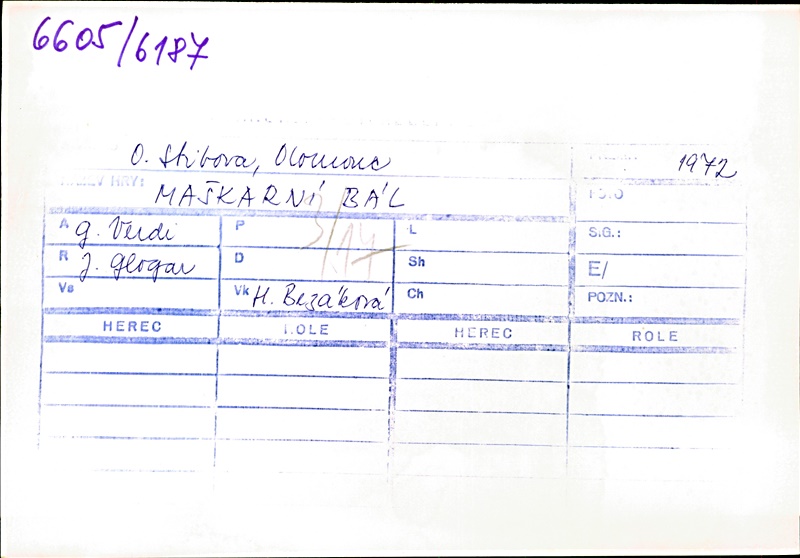 6605/6187
O. Stibora, Olomouc 1972
NÁZEV HRY: MAŠKARNÍ BÁL
A G. Verdi P L S.G.:
R J. Glogar D Sh E/
Vs Vk H. Bezáková Ch POZN.:
3/14
HEREC ROLE HEREC ROLE